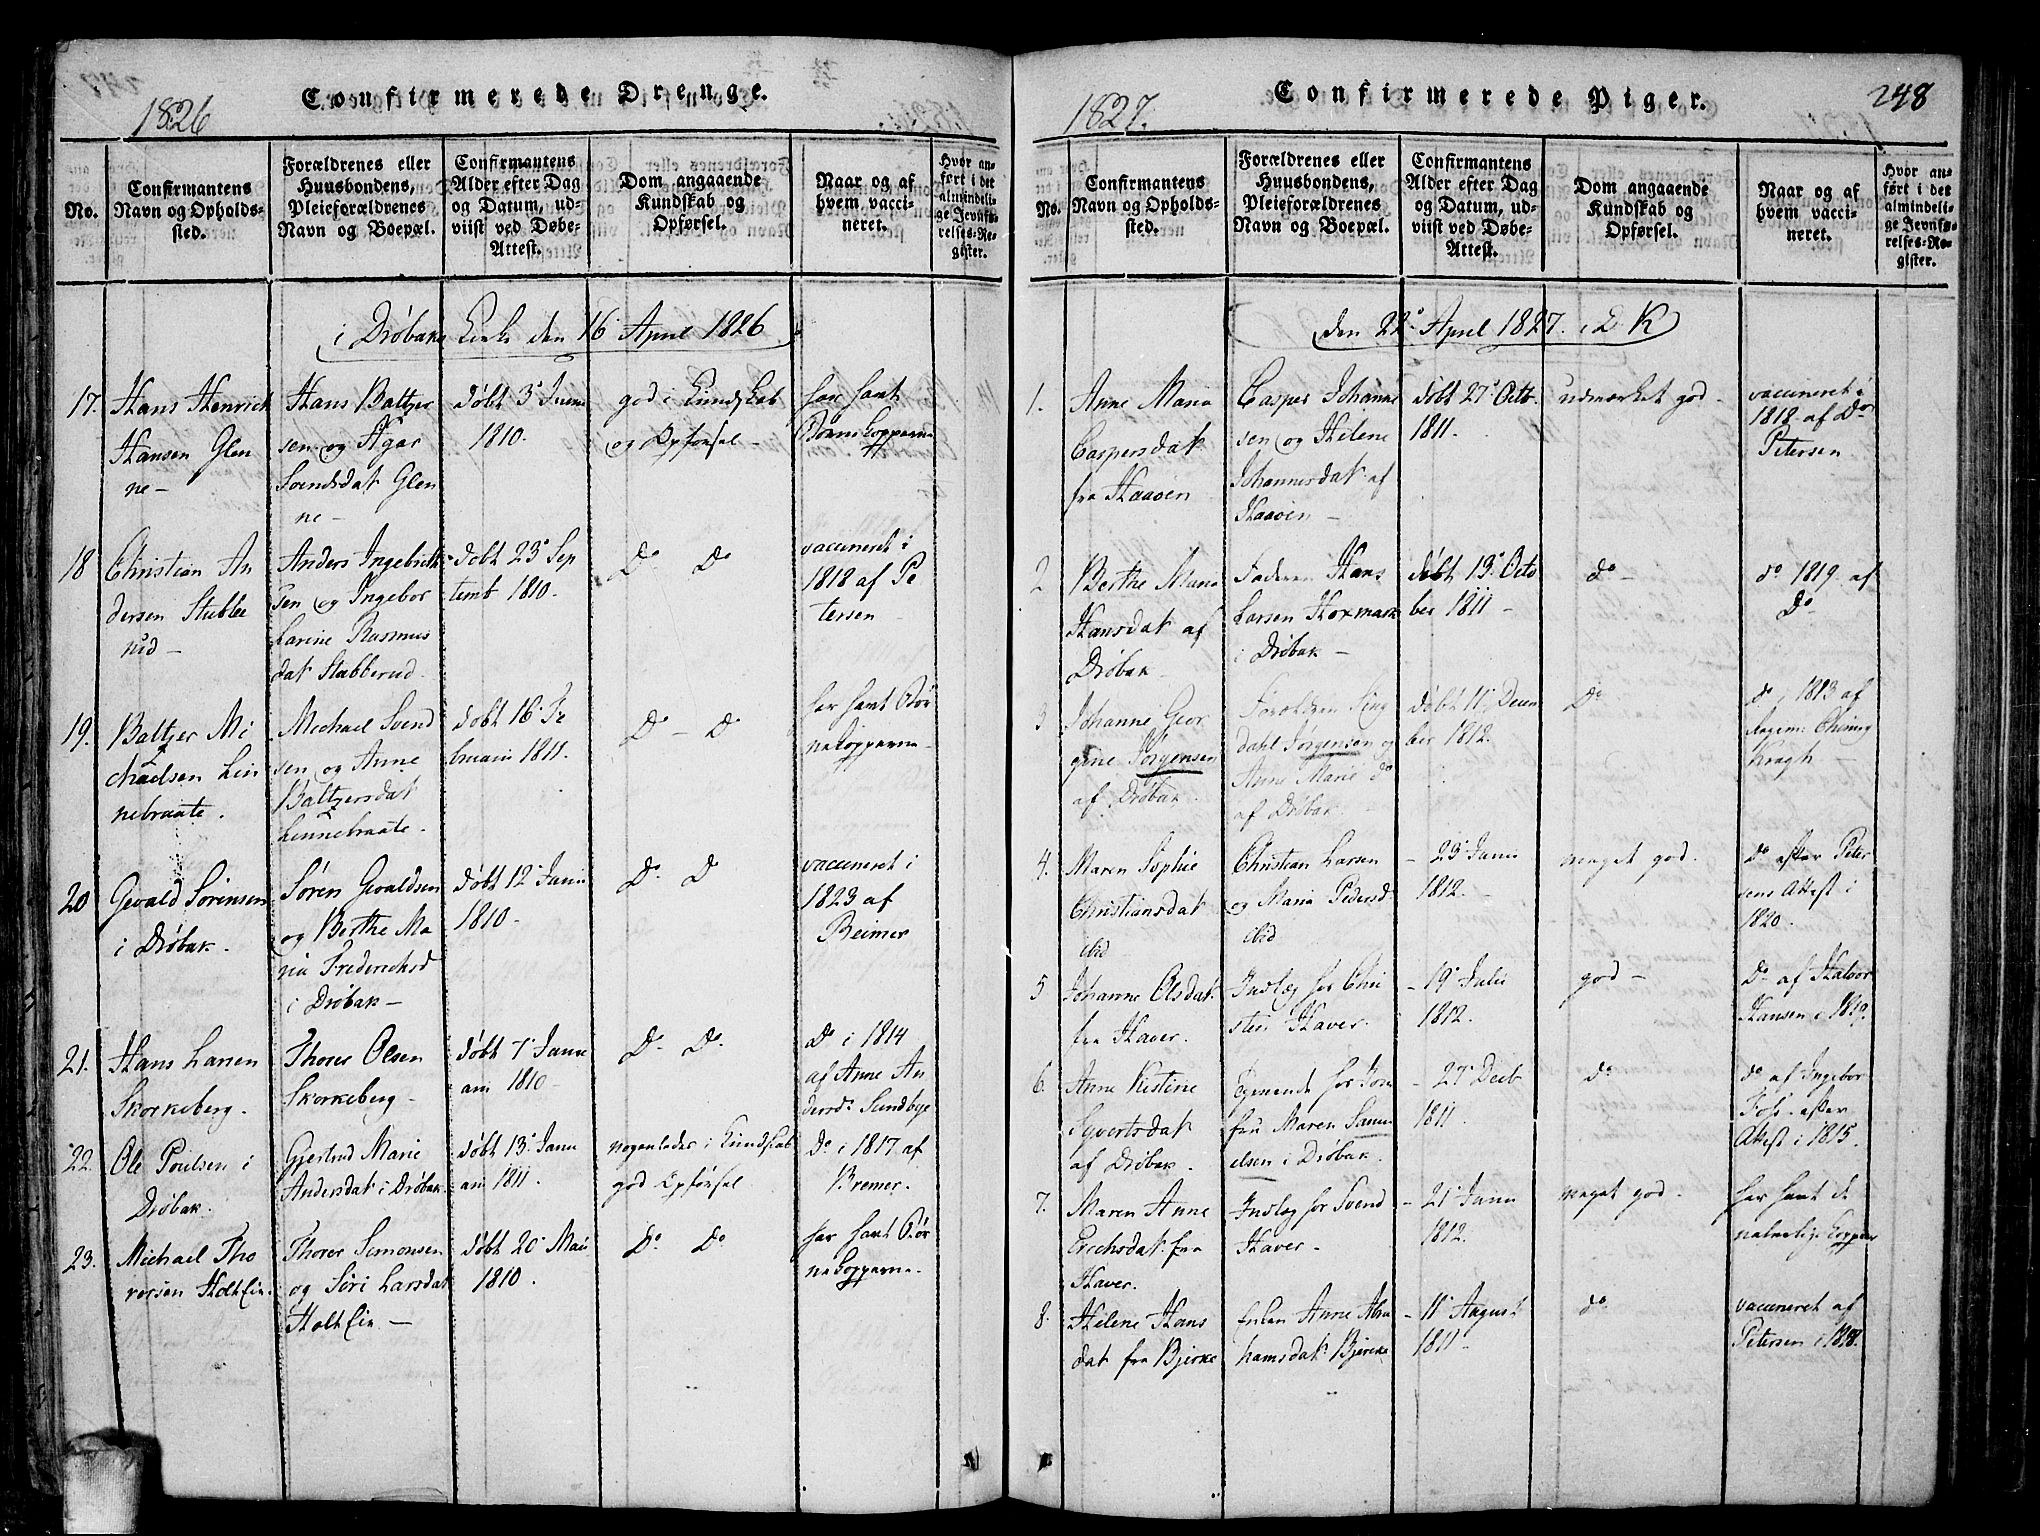 Confirmerede Drenge.
1826
No.
Confirmantens
Navn og Opholds-
sted.
Forældrenes eller
Huusbondens,
Pleieforældrenes
Navn og Boepæl.
Confirmantens
Alder efter Dag
og Datum, ud-
viist ved Døbe-
Attest.
Dom angaaende
Kundskab og
Opførsel.
Naar og af
hvem vacci-
neret.
Hvor an-
ført i det
almindeli-
ge Jevnfø-
relses-Re-
gister.
i Drøbaks Kirke den 16 April 1826
17.
Hans Henrich
Hansen Glen
ne -
Hans Baltzer
sen og Agar
Svendsdat Glen
ne -
døbt 3. Junii
1810.
god i Kundskab
og Opførsel -
har havt
Børnekopperne
18
Christian An
dersen Stubbe
rud -
Anders Ingebrikt
sen og Ingebor
Larine Rasmus
dat Stubberud.
døbt 23. Sep
temb 1810.
Do Do
vaccineret i
1818 af Pe
tersen
19.
Baltzer Mi
chaelsen Lin
nebraate.
Michael Svend
sen og Anne
Baltzersdat
Linnebraate.
døbt 16. Fe
bruarii 1811.
Do - Do
har havt Bør
nekopperne -
20
Gevald Sørensen
i Drøbak.
Søren Gevaldsen
og Berthe Ma
ria Frederichsd
i Drøbak -
døbt 12. Junii
1810.
Do Do
vaccineret i
1823 af
Reimer
21.
Hans Larsen
Skorkeberg.
Thorer Olsen
Skorkeberg -
døbt 7. Janu
arii 1810 -
Do. Do.
Do i 1814
af Anne An
dersd. Sundbye
22.
Ole Poulsen i
Drøbak.
Gjertrud Marie
Andersdat i Drøbak
døbt 13. Janu
arii 1811.
nogenledes i Kundskab
god Opførsel
Do. i 1817 af
Bremer.
23.
Michael Tho
rersen Holtlin.
Thorer Simonsen
og Siri Larsdat
Holtlin. -
døbt 20. Maii
1810.
Do. Do.
har havt Bør
nekopperne.
Confirmerede Piger.
248
1827.
No.
Confirmantens
Navn og Opholds-
sted.
Forældrenes eller
Huusbondens,
Pleieforældrenes
Navn og Boepæl.
Confirmantens
Alder efter Dag
og Datum, ud-
viist ved Døbe-
Attest.
Dom angaaende
Kundskab og
Opførsel.
Naar og af
hvem vacci-
neret.
Hvor an-
ført i det
almindeli-
ge Jevnfø-
relses-Re-
gister.
den 22. April 1827. i D K
1.
Anne Maria
Caspersdat
fra Haaven
Casper Johanne
sen og Helene
Johannesdat af
Haaven -
døbt 27. Octo.
1811.
udmærket god.
vaccineret i
1818 af Do
Petersen
2
Berthe Maria
Hansdat af
Drøbak
Faderen Hans
Larsen Hormark
i Drøbak -
døbt 13. Octo
ber 1811 -
do -
do 1819. af
Do
3
Johanne Geor
gine Jørgensen
af Drøbak.
Forældren Sing
dahl Jørgensen og
Anne Marie do
af Drøbak.
døbt 11. Decem
ber 1812.
Do
do i 1813 af
Regim: Chirurg
Kragh -
4.
Maren Sophie
Christiansdat
ibid
Christian Larsen
og Maria Pedersd
ibid
- 23. Janu
1812. -
meget god.
Do efter Peter
sens Attest i
1820.
5
Johanne Olsdat
fra Haver.
Indlæg hos Chri
sten Haver.
- 19. Julii
1812.
god -
Do. af Halvor
Hansen i 1819.
6.
Anne Kistine
Syvertsdat
af Drøbak.
Egnende hos Jom
fru Maren Samu
elsen i Drøbak.
- 27. Decb
1811.
do
do af Ingebor
Foss. efter
Attest i 1815.
7.
Maren Anne
Erichsdat fra
Haver.
Indlæg hos Svend
Haver. -
- 21. Janu
1812.
meget god.
har havt de
naturlige Kopper
8.
Helene Hans
dat fra Bjerke
Enken Anne Abra
hamsdat. Bjerke
- 11. August
1811 -
do
vaccineret af
Petersen i 1818.